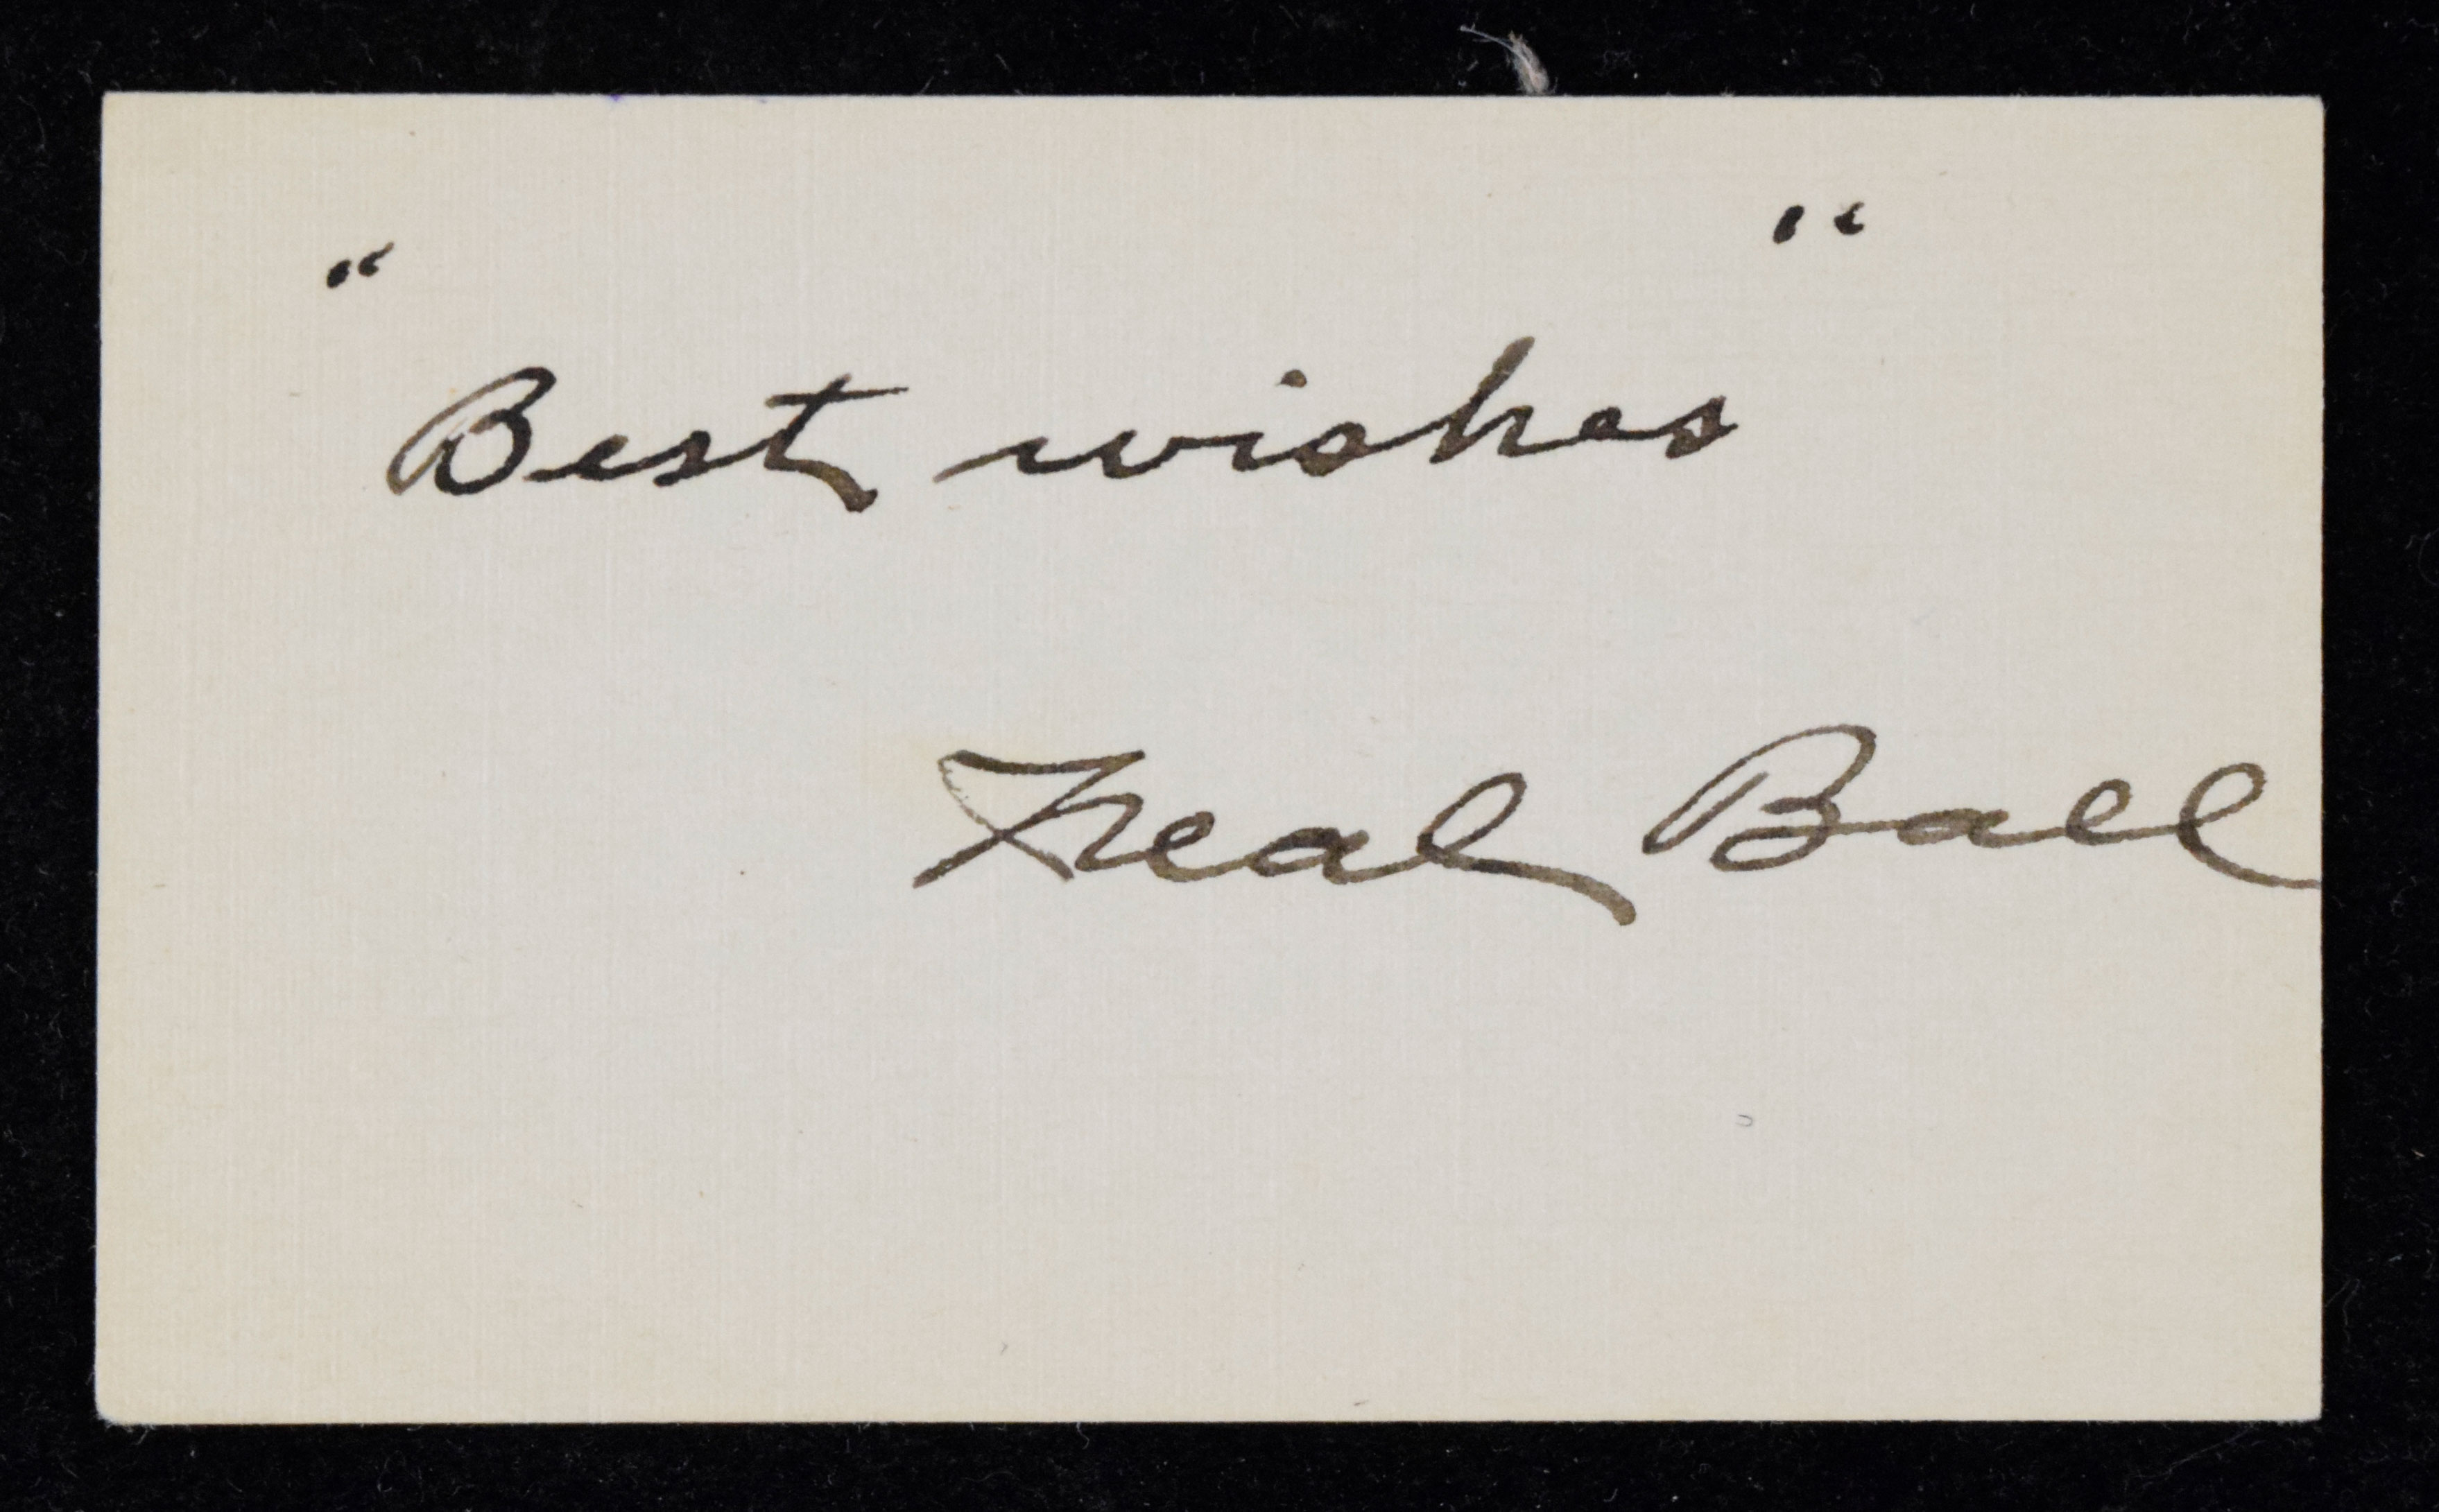 "Best wishes"
Neal Ball